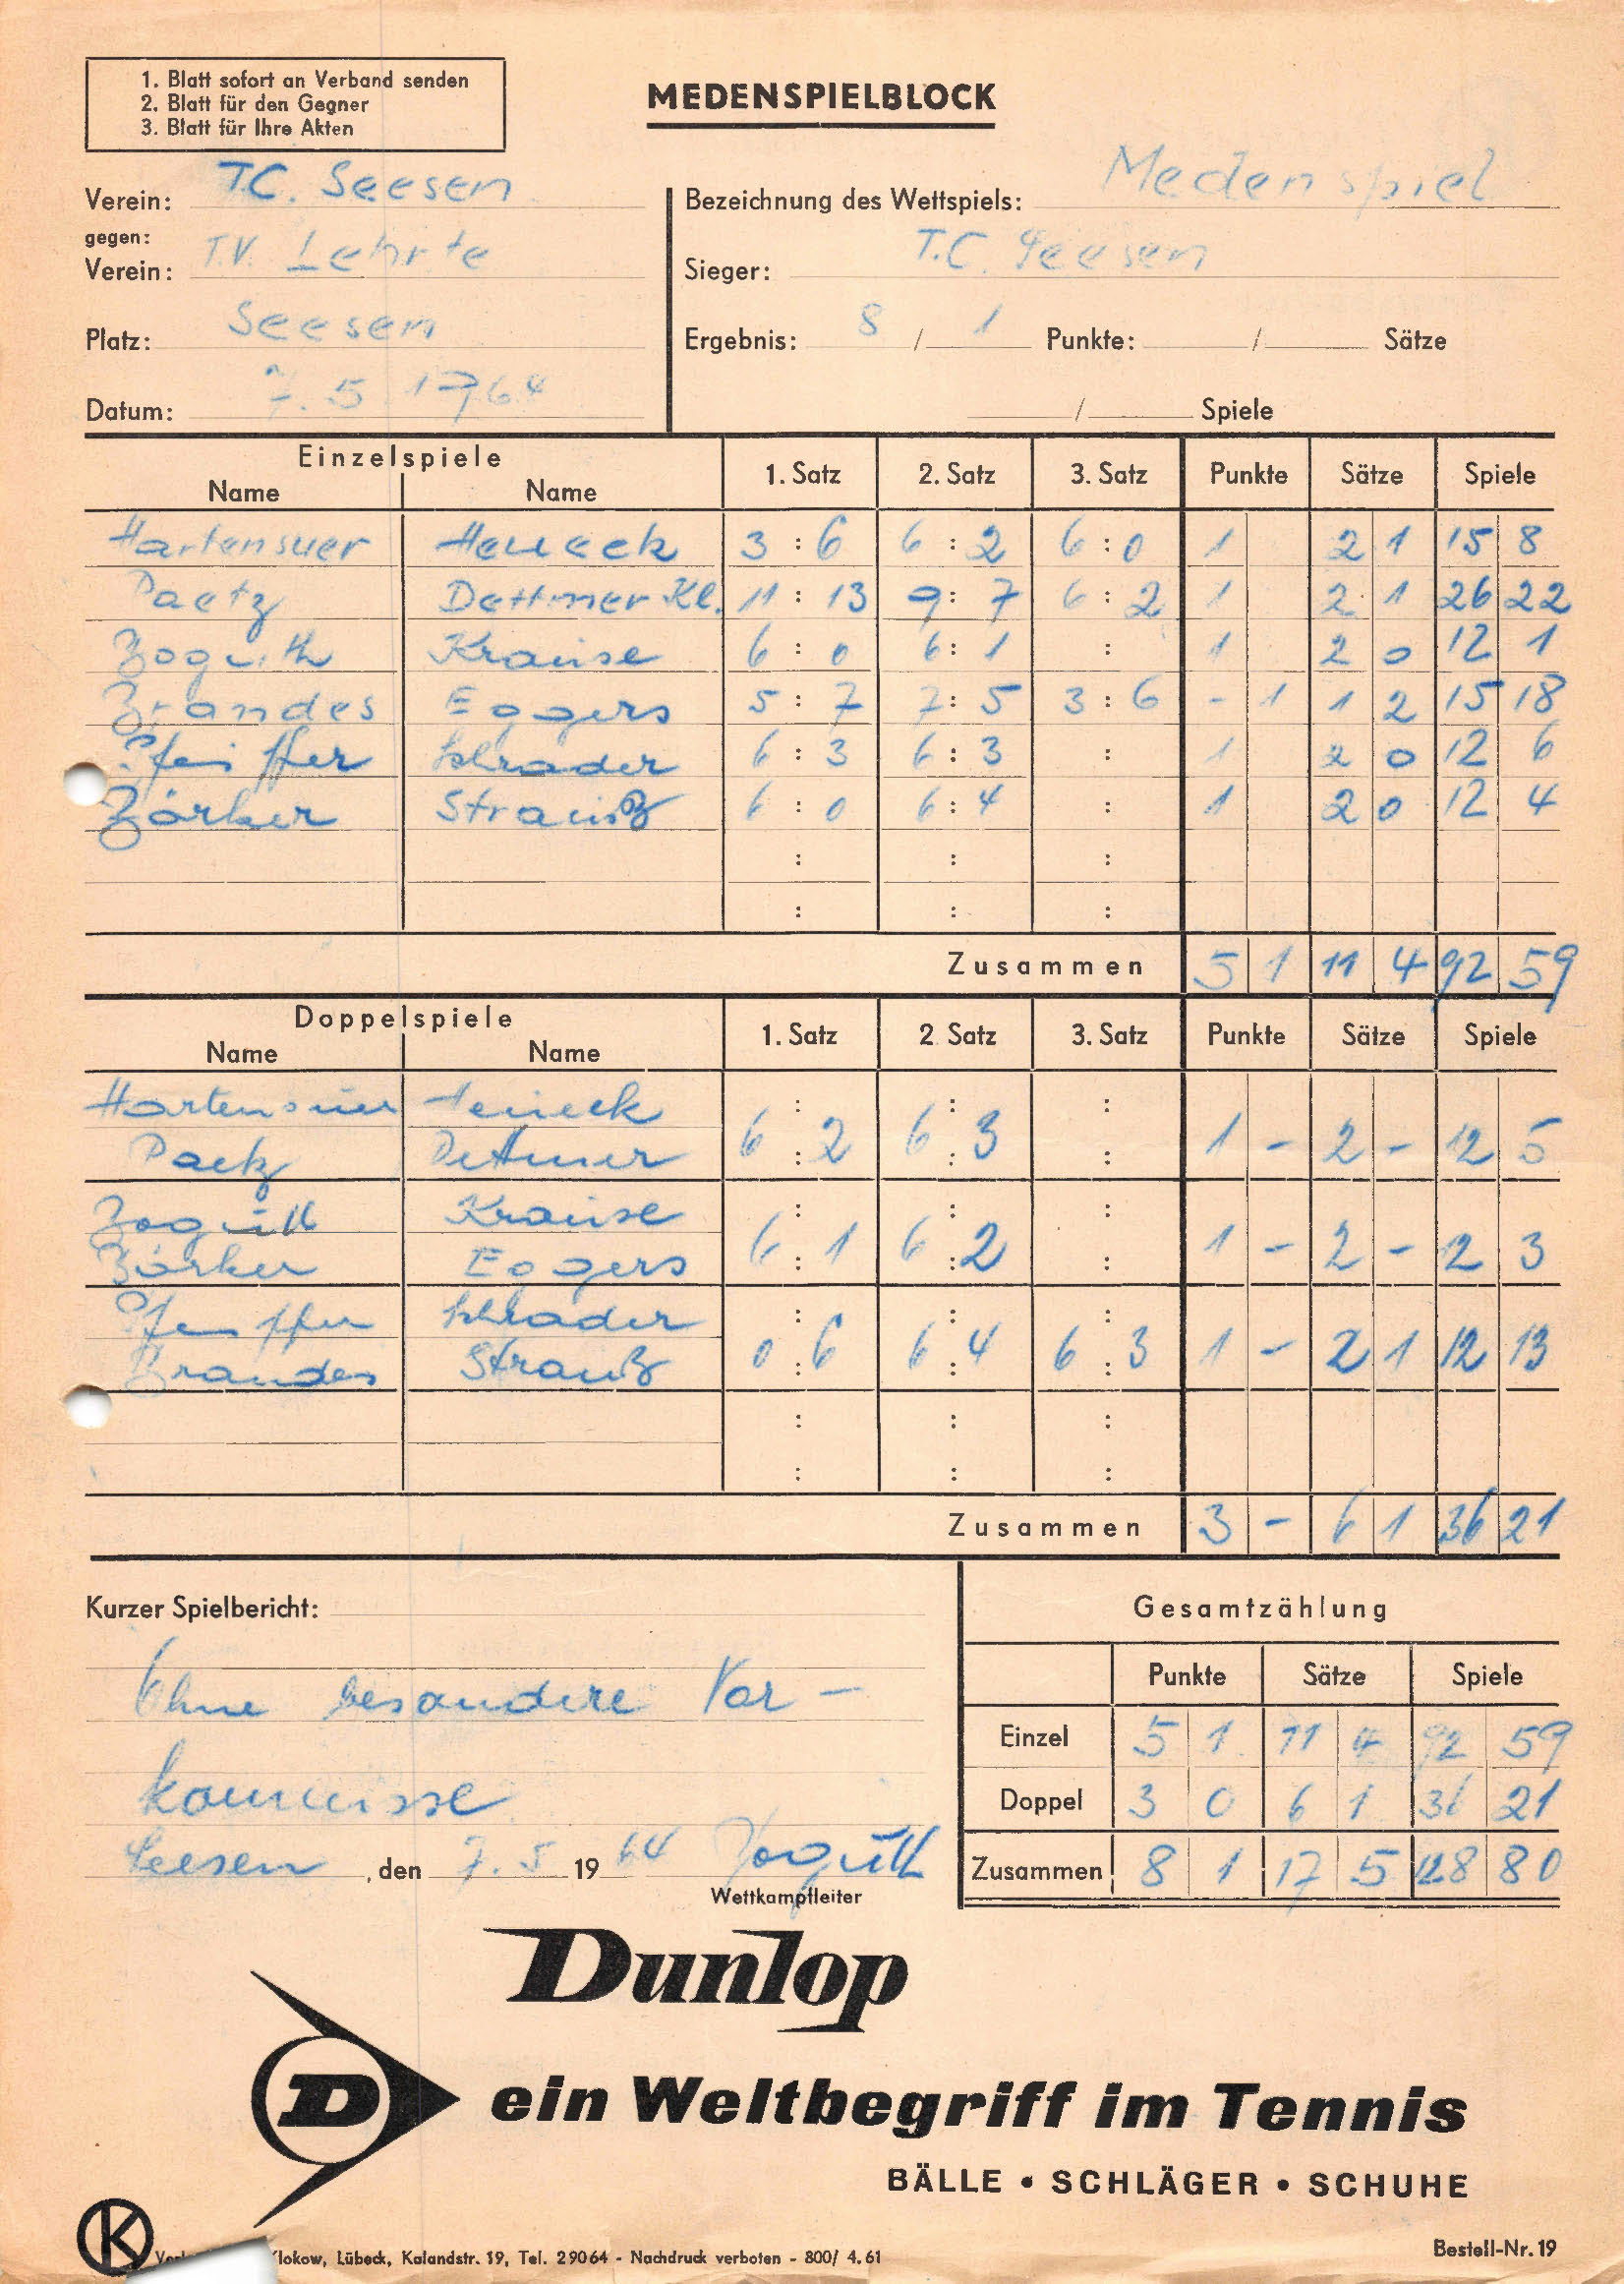 1. Blatt sofort an Verband senden
2. Blatt für den Gegner
3. Blatt für Ihre Akten
MEDENSPIELBLOCK
Verein: T.C. Seesen
gegen:
Verein: T.V. Lehrte
Platz: Seesen
Datum: 7.5.1964
Bezeichnung des Wettspiels: Medenspiel
Sieger: T.C. Seesen
Ergebnis: 8 / 1 Punkte: / Sätze
/ Spiele
Einzelspiele
Name Name 1. Satz 2. Satz 3. Satz Punkte Sätze Spiele
Hartensuer Heueck 3 : 6 6 : 2 6 : 0 1 2 1 15 8
Paetz Dettmer Kl. 11 : 13 9 : 7 6 : 2 1 2 1 26 22
Zoguth Krause 6 : 0 6 : 1 : 1 2 0 12 1
Brandes Eggers 5 : 7 7 : 5 3 : 6 - 1 1 2 15 18
Pfeiffer Schrader 6 : 3 6 : 3 : 1 2 0 12 6
Börker Strauß 6 : 0 6 : 4 : 1 2 0 12 4
: : :
: : :
Zusammen 5 1 11 4 92 59
Doppelspiele
Name Name 1. Satz 2. Satz 3. Satz Punkte Sätze Spiele
Hartensuer Heueck : : :
Paetz Dettmer 6 : 2 6 : 3 : 1 - 2 - 12 5
Zoguth Krause : : :
Börker Eggers 6 : 1 6 : 2 : 1 - 2 - 12 3
Pfeiffer Schrader : : :
Brandes Strauß 0 : 6 6 : 4 6 : 3 1 - 2 1 12 13
: : :
: : :
Zusammen 3 - 6 1 36 21
Kurzer Spielbericht:
Ohne besondere Vor-
kommnisse
Seesen , den 7.5. 19 64 Zoguth
Wettkampfleiter
Gesamtzählung
Punkte Sätze Spiele
Einzel 5 1 11 4 92 59
Doppel 3 0 6 1 36 21
Zusammen 8 1 17 5 128 80
Dunlop
D ein Weltbegriff im Tennis
BÄLLE • SCHLÄGER • SCHUHE
K
lokow, Lübeck, Kalandstr. 19, Tel. 29064 - Nachdruck verboten - 800/ 4.61
Bestell-Nr. 19